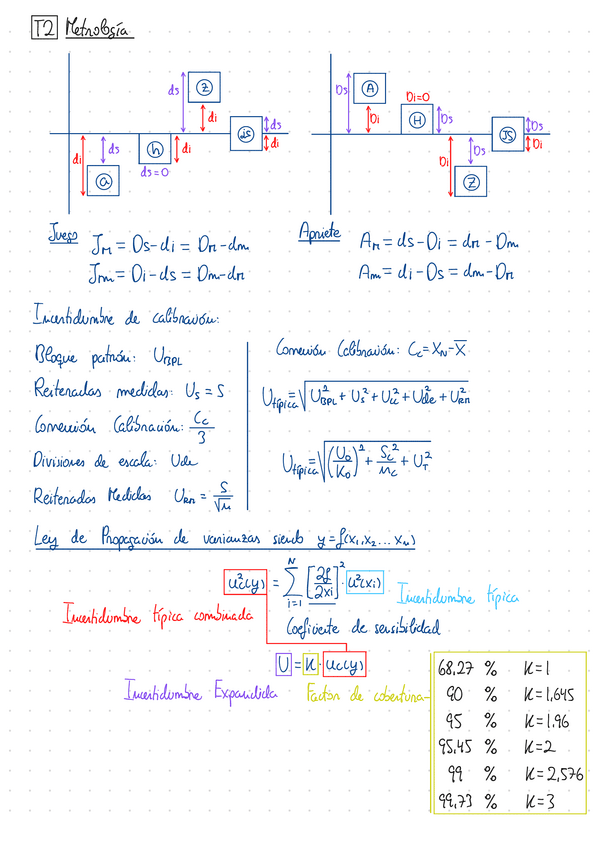 T2 Metrología
ds z di ds js di di ds a h di ds=0
Ds A Di Di=0 H Ds Ds JS Di Di Ds Z
Juego JM = Ds-di = DM-dm
Jm = Di-ds = Dm-dM
Apriete AM = ds-Di = dM-Dm
Am = di-Ds = dm-DM
Incertidumbre de calibración:
Bloque patrón: UBPL
Reiteradas medidas: Us = S
Corrección Calibración: Cc/3
Divisiones de escala: Ude
Reiteradas Medidas URM = S/√n
Corrección Calibración: Cc = XN-X̅
Utípica = √(U²BPL + Us² + Ucc² + Ude² + URM²)
Utípica = √((U0/K0)² + Sc²/nc + Ur²)
Ley de Propagación de varianzas siendo y=f(x1,x2...xN)
uc²(y) = ∑ N i=1 [∂f/∂xi]² · u²(xi)
Incertidumbre típica
Incertidumbre típica combinada
Coeficiente de sensibilidad
U = K · uc(y)
Incertidumbre Expandida
Factor de cobertura
68,27 % K=1
90 % K=1,645
95 % K=1.96
95,45 % K=2
99 % K=2,576
99,73 % K=3